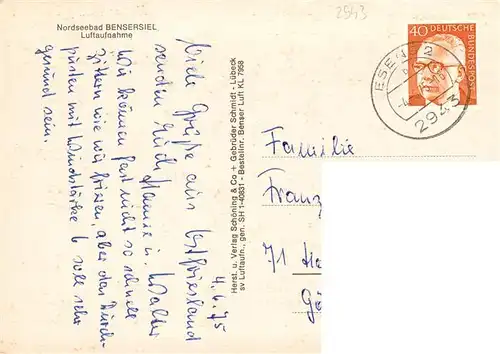 2943
Nordseebad BENSERSIEL
Luftaufnahme
4.6.75
Viele Grüße aus Ostfriesland
senden Euch Hanne u. Walter
Wir können fast nicht so schnell
zittern wie wir frieren, aber das Durch-
pusten mit Windstärke 6 soll sehr
gesund sein.
Herst. u. Verlag Schöning & Co + Gebrüder Schmidt - Lübeck
sv Luftaufn., gen. SH 1-40831 - Bestellnr. Benser Luft KL 7958
40 DEUTSCHE BUNDESPOST
ESENS
2943
Familie
Franz
71